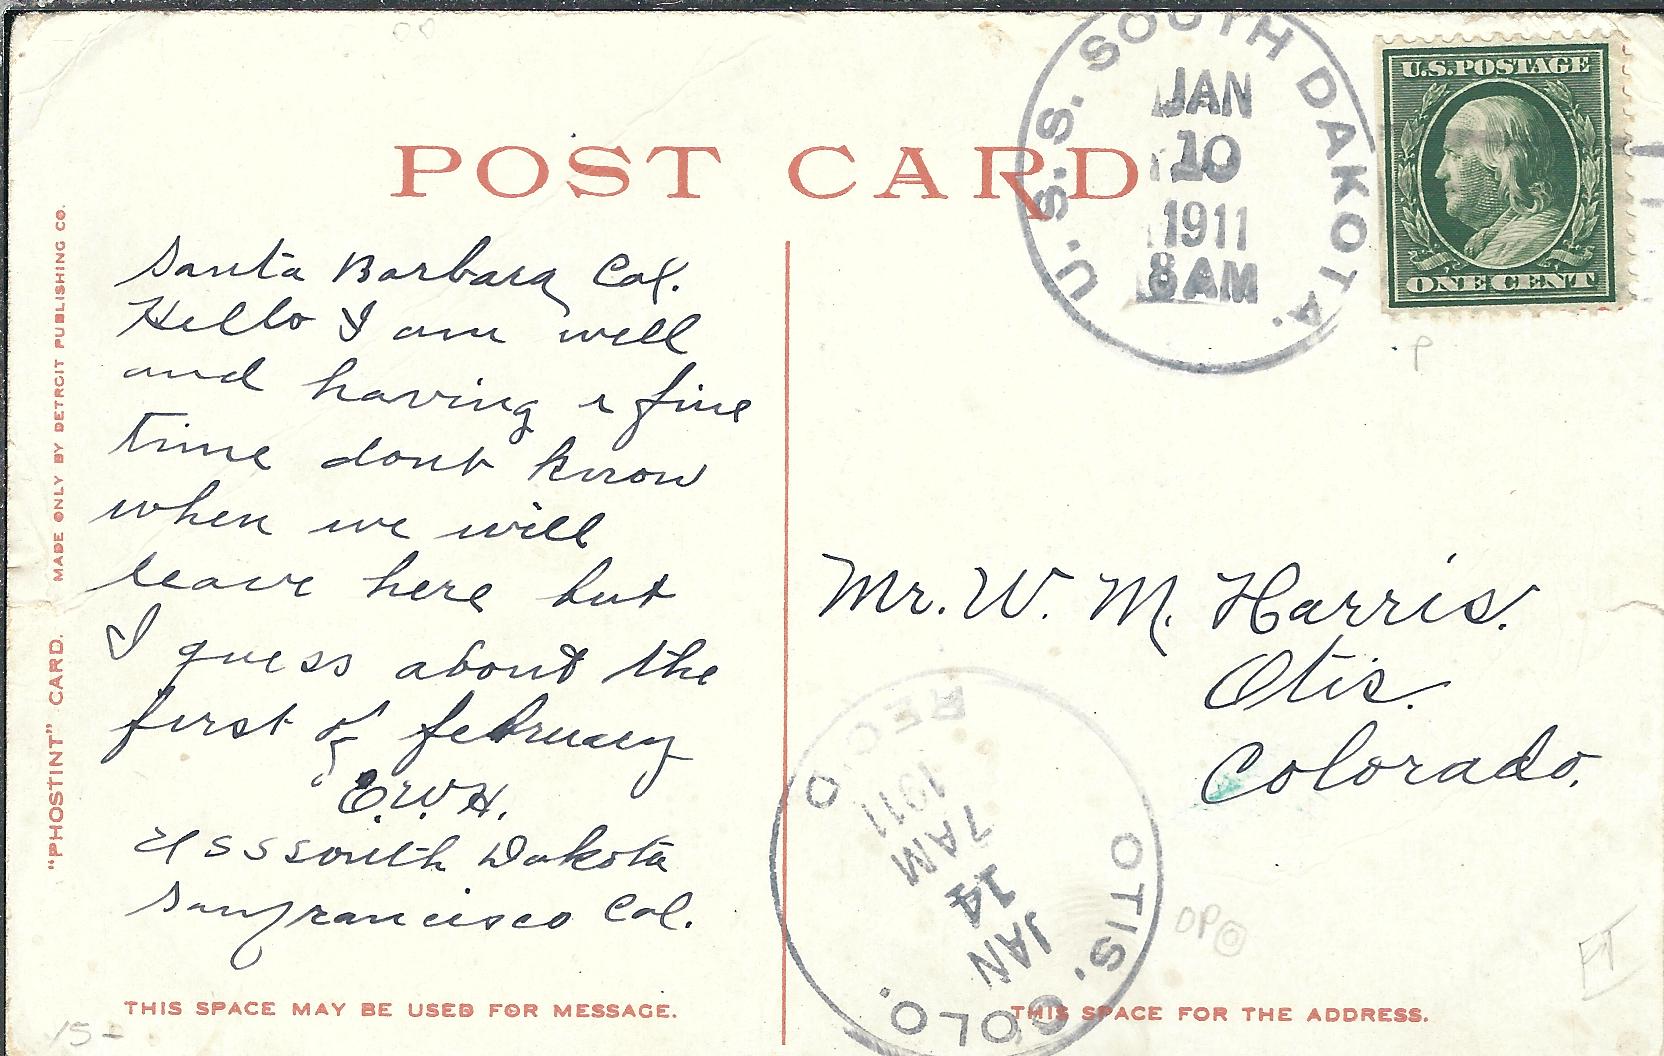 POST CARD
U.S.S. SOUTH DAKOTA.
JAN
10
1911
8 AM
U.S. POSTAGE
ONE CENT
"PHOSTINT" CARD. MADE ONLY BY DETROIT PUBLISHING CO.
Santa Barbara Cal.
Hello I am well
and having a fine
time dont know
when we will
leave here but
I guess about the
first of february
E.W.H.
USS South Dakota
Sanfrancisco Cal.
Mr. W. M. Harris.
Otis.
Colorado.
OTIS. COLO.
REC'D
JAN
14
7 AM
1911
THIS SPACE MAY BE USED FOR MESSAGE.
THIS SPACE FOR THE ADDRESS.
15-